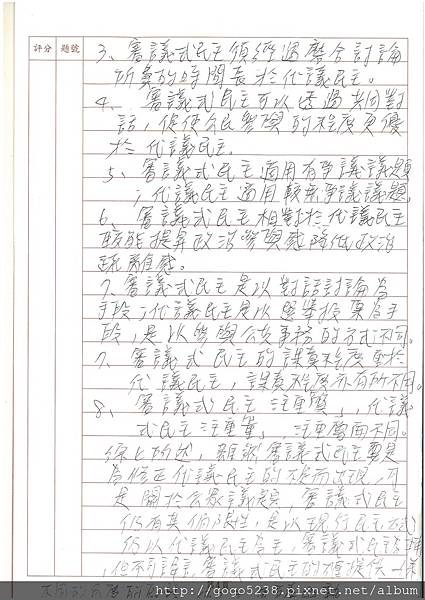 評分 題號
3、審議式民主須經過整合討論
所費的時間長於代議民主。
4、審議式民主可以透過共同對
話,促使公民參與的程度更優
於代議民主。
5、審議式民主適用有爭議議題
;代議民主適用較無爭議議題。
6、審議式民主相對於代議民主
較能提昇政治參與感降低政治
疏離感。
7、審議式民主是以對話討論為
手段;代議民主是以選舉投票為手
段,是以參與公共事務的方式不同。
7、審議式民主的認真程度對於
代議民主,認真程度亦有所不同。
8、審議式民主「注重質」,代議
式民主「注重量」,注重層面不同。
綜上所述,雖說審議式民主
為修正代議民主的不足而出現,可
是關於公眾議題,審議式民主
仍有其侷限性,是以現行民主方式
仍以代議民主為主,審議式民主為輔
,但不可諱言審議式民主的確提供一
http://gogo5238.pixnet.net/album